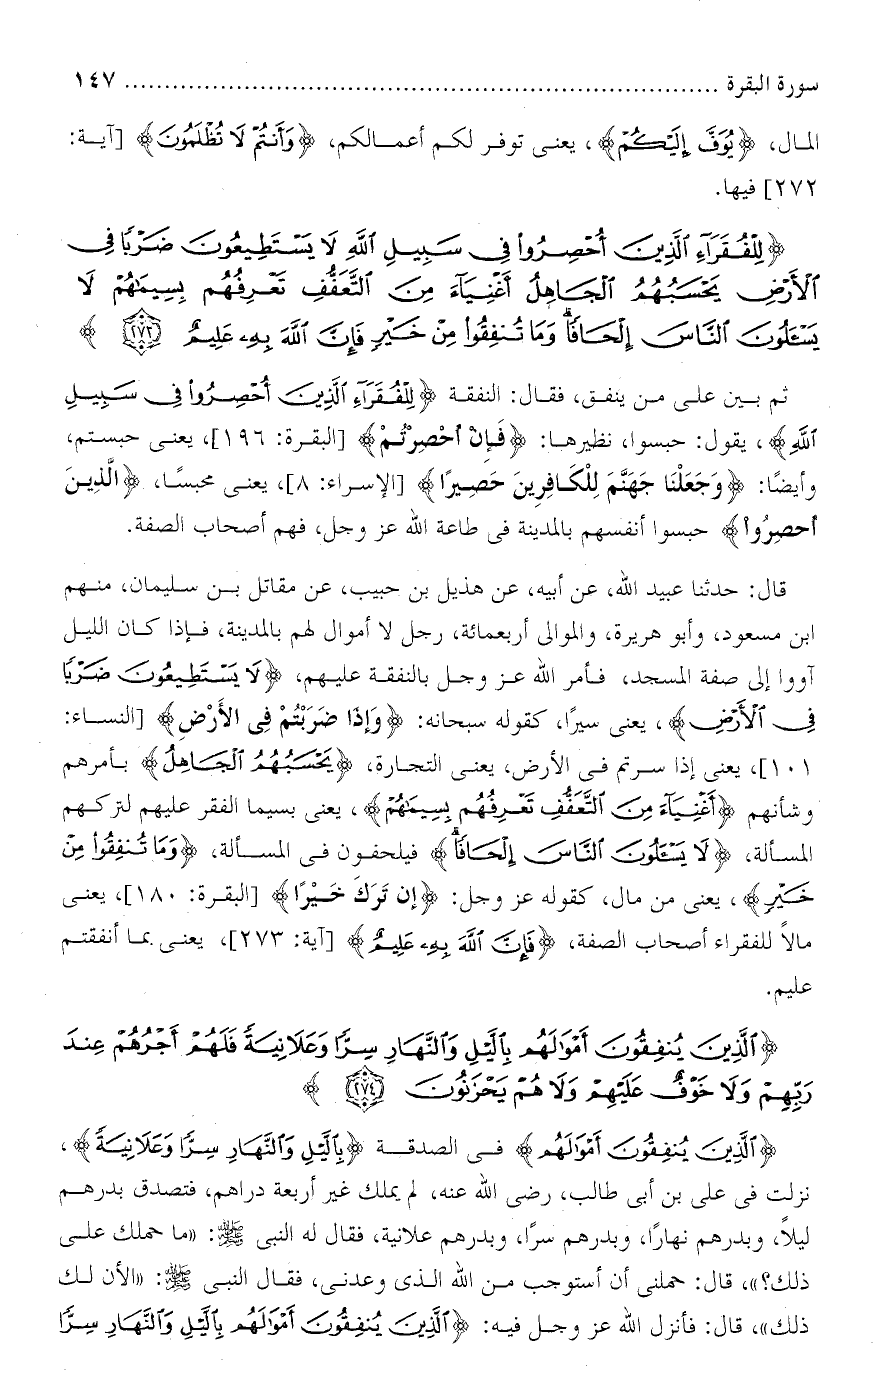 سورة البقرة ........................................................................... ١٤٧
المال، ﴿يُوَفَّ إِلَيْكُمْ﴾، يعنى توفر لكم أعمالكم، ﴿وَأَنتُمْ لَا تُظْلَمُونَ﴾ [آية:
٢٧٢] فيها.
﴿لِلْفُقَرَآءِ ٱلَّذِينَ أُحْصِرُوا۟ فِى سَبِيلِ ٱللَّهِ لَا يَسْتَطِيعُونَ ضَرْبًا فِى
ٱلْأَرْضِ يَحْسَبُهُمُ ٱلْجَاهِلُ أَغْنِيَآءَ مِنَ ٱلتَّعَفُّفِ تَعْرِفُهُم بِسِيمَٰهُمْ لَا
يَسْـَٔلُونَ ٱلنَّاسَ إِلْحَافًا ۗ وَمَا تُنفِقُوا۟ مِنْ خَيْرٍ فَإِنَّ ٱللَّهَ بِهِۦ عَلِيمٌ ٢٧٣ ﴾
ثم بين على من ينفق، فقال: النفقة ﴿لِلْفُقَرَآءِ ٱلَّذِينَ أُحْصِرُوا۟ فِى سَبِيلِ
ٱللَّهِ﴾، يقول: حبسوا، نظيرها: ﴿فَإِنْ أُحْصِرْتُمْ﴾ [البقرة: ١٩٦]، يعنى حبستم،
وأيضًا: ﴿وَجَعَلْنَا جَهَنَّمَ لِلْكَافِرِينَ حَصِيرًا﴾ [الإسراء: ٨]، يعنى محبسًا، ﴿الَّذِينَ
أُحصِرُوا۟﴾ حبسوا أنفسهم بالمدينة فى طاعة الله عز وجل، فهم أصحاب الصفة.
قال: حدثنا عبيد الله، عن أبيه، عن هذيل بن حبيب، عن مقاتل بن سليمان، منهم
ابن مسعود، وأبو هريرة، والموالى أربعمائة، رجل لا أموال لهم بالمدينة، فإذا كان الليل
آووا إلى صفة المسجد، فأمر الله عز وجل بالنفقة عليهم، ﴿لَا يَسْتَطِيعُونَ ضَرْبًا
فِى ٱلْأَرْضِ﴾، يعنى سيرًا، كقوله سبحانه: ﴿وَإِذَا ضَرَبْتُمْ فِى الأَرْضِ﴾ [النساء:
١٠١]، يعنى إذا سرتم فى الأرض، يعنى التجارة، ﴿يَحْسَبُهُمُ ٱلْجَاهِلُ﴾ بأمرهم
وشأنهم ﴿أَغْنِيَآءَ مِنَ ٱلتَّعَفُّفِ تَعْرِفُهُم بِسِيمَٰهُمْ﴾، يعنى بسيما الفقر عليهم لتركهم
المسألة، ﴿لَا يَسْـَٔلُونَ ٱلنَّاسَ إِلْحَافًا ۗ﴾ فيلحفون فى المسألة، ﴿وَمَا تُنفِقُوا۟ مِنْ
خَيْرٍ﴾، يعنى من مال، كقوله عز وجل: ﴿إِن تَرَكَ خَيْرًا﴾ [البقرة: ١٨٠]، يعنى
مالاً للفقراء أصحاب الصفة، ﴿فَإِنَّ ٱللَّهَ بِهِۦ عَلِيمٌ﴾ [آية: ٢٧٣]، يعنى بما أنفقتم
عليم.
﴿ٱلَّذِينَ يُنفِقُونَ أَمْوَٰلَهُم بِٱلَّيْلِ وَٱلنَّهَارِ سِرًّا وَعَلَانِيَةً فَلَهُمْ أَجْرُهُمْ عِندَ
رَبِّهِمْ وَلَا خَوْفٌ عَلَيْهِمْ وَلَا هُمْ يَحْزَنُونَ ٢٧٤ ﴾
﴿ٱلَّذِينَ يُنفِقُونَ أَمْوَٰلَهُم﴾ فى الصدقة ﴿بِٱلَّيْلِ وَٱلنَّهَارِ سِرًّا وَعَلَانِيَةً﴾،
نزلت فى على بن أبى طالب، رضى الله عنه، لم يملك غير أربعة دراهم، فتصدق بدرهم
ليلاً، وبدرهم نهارًا، وبدرهم سرًا، وبدرهم علانية، فقال له النبى ﷺ: «ما حملك على
ذلك؟»، قال: حملنى أن أستوجب من الله الذى وعدنى، فقال النبى ﷺ: «الأن لك
ذلك»، قال: فأنزل الله عز وجل فيه: ﴿ٱلَّذِينَ يُنفِقُونَ أَمْوَٰلَهُم بِٱلَّيْلِ وَٱلنَّهَارِ سِرًّا